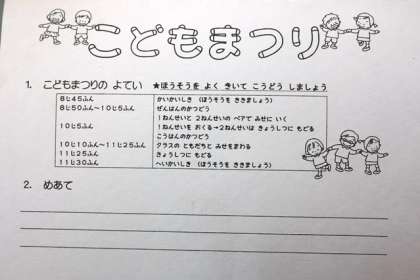 こどもまつり
1. こどもまつりの よてい ★ほうそうを よく きいて こうどう しましょう
8じ45ふん かいかいしき (ほうそうを ききましょう)
8じ50ふん~10じ5ふん ぜんはんのかつどう
1ねんせいと 2ねんせいの ペアで みせに いく
10じ5ふん 1ねんせいを おくる→2ねんせいは きょうしつに もどる
こうはんのかつどう
10じ10ふん~11じ25ふん クラスの ともだちと みせをまわる
11じ25ふん きょうしつに もどる
11じ30ふん へいかいしき (ほうそうを ききましょう)
2. めあて